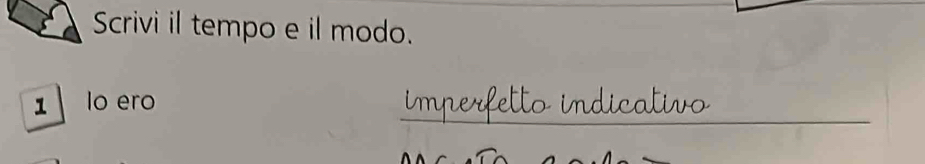 Scrivi il tempo e il modo.
1 Io ero imperfetto indicativo